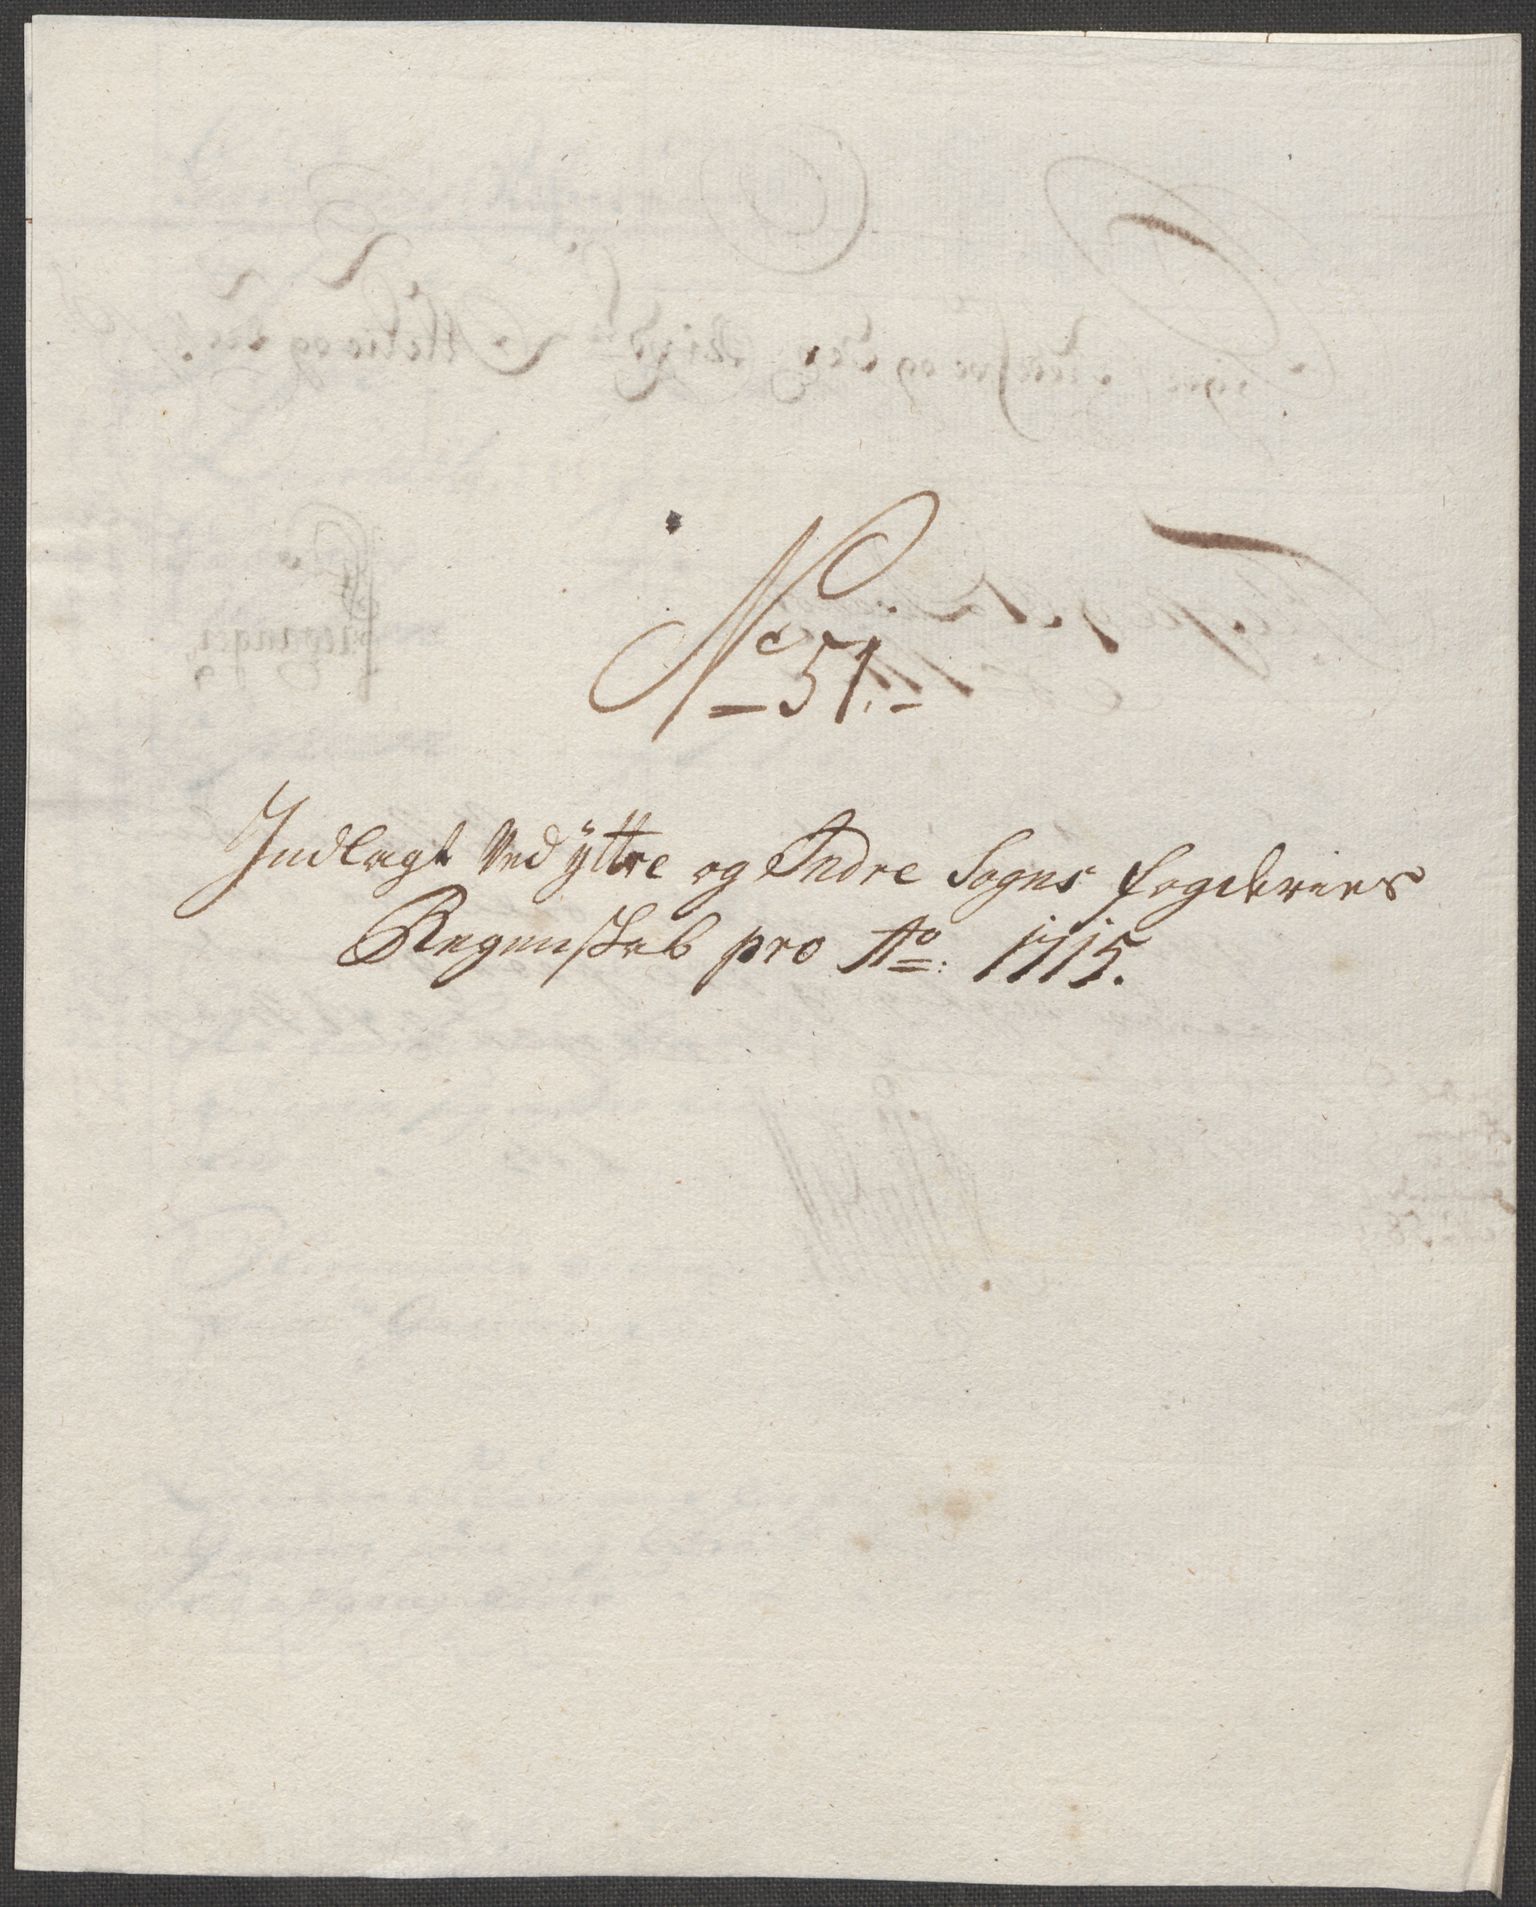 No 51.
Indlagt Ved ÿttre og Indre Sogns fogderiers
Regenskab pro Ao: 1715.